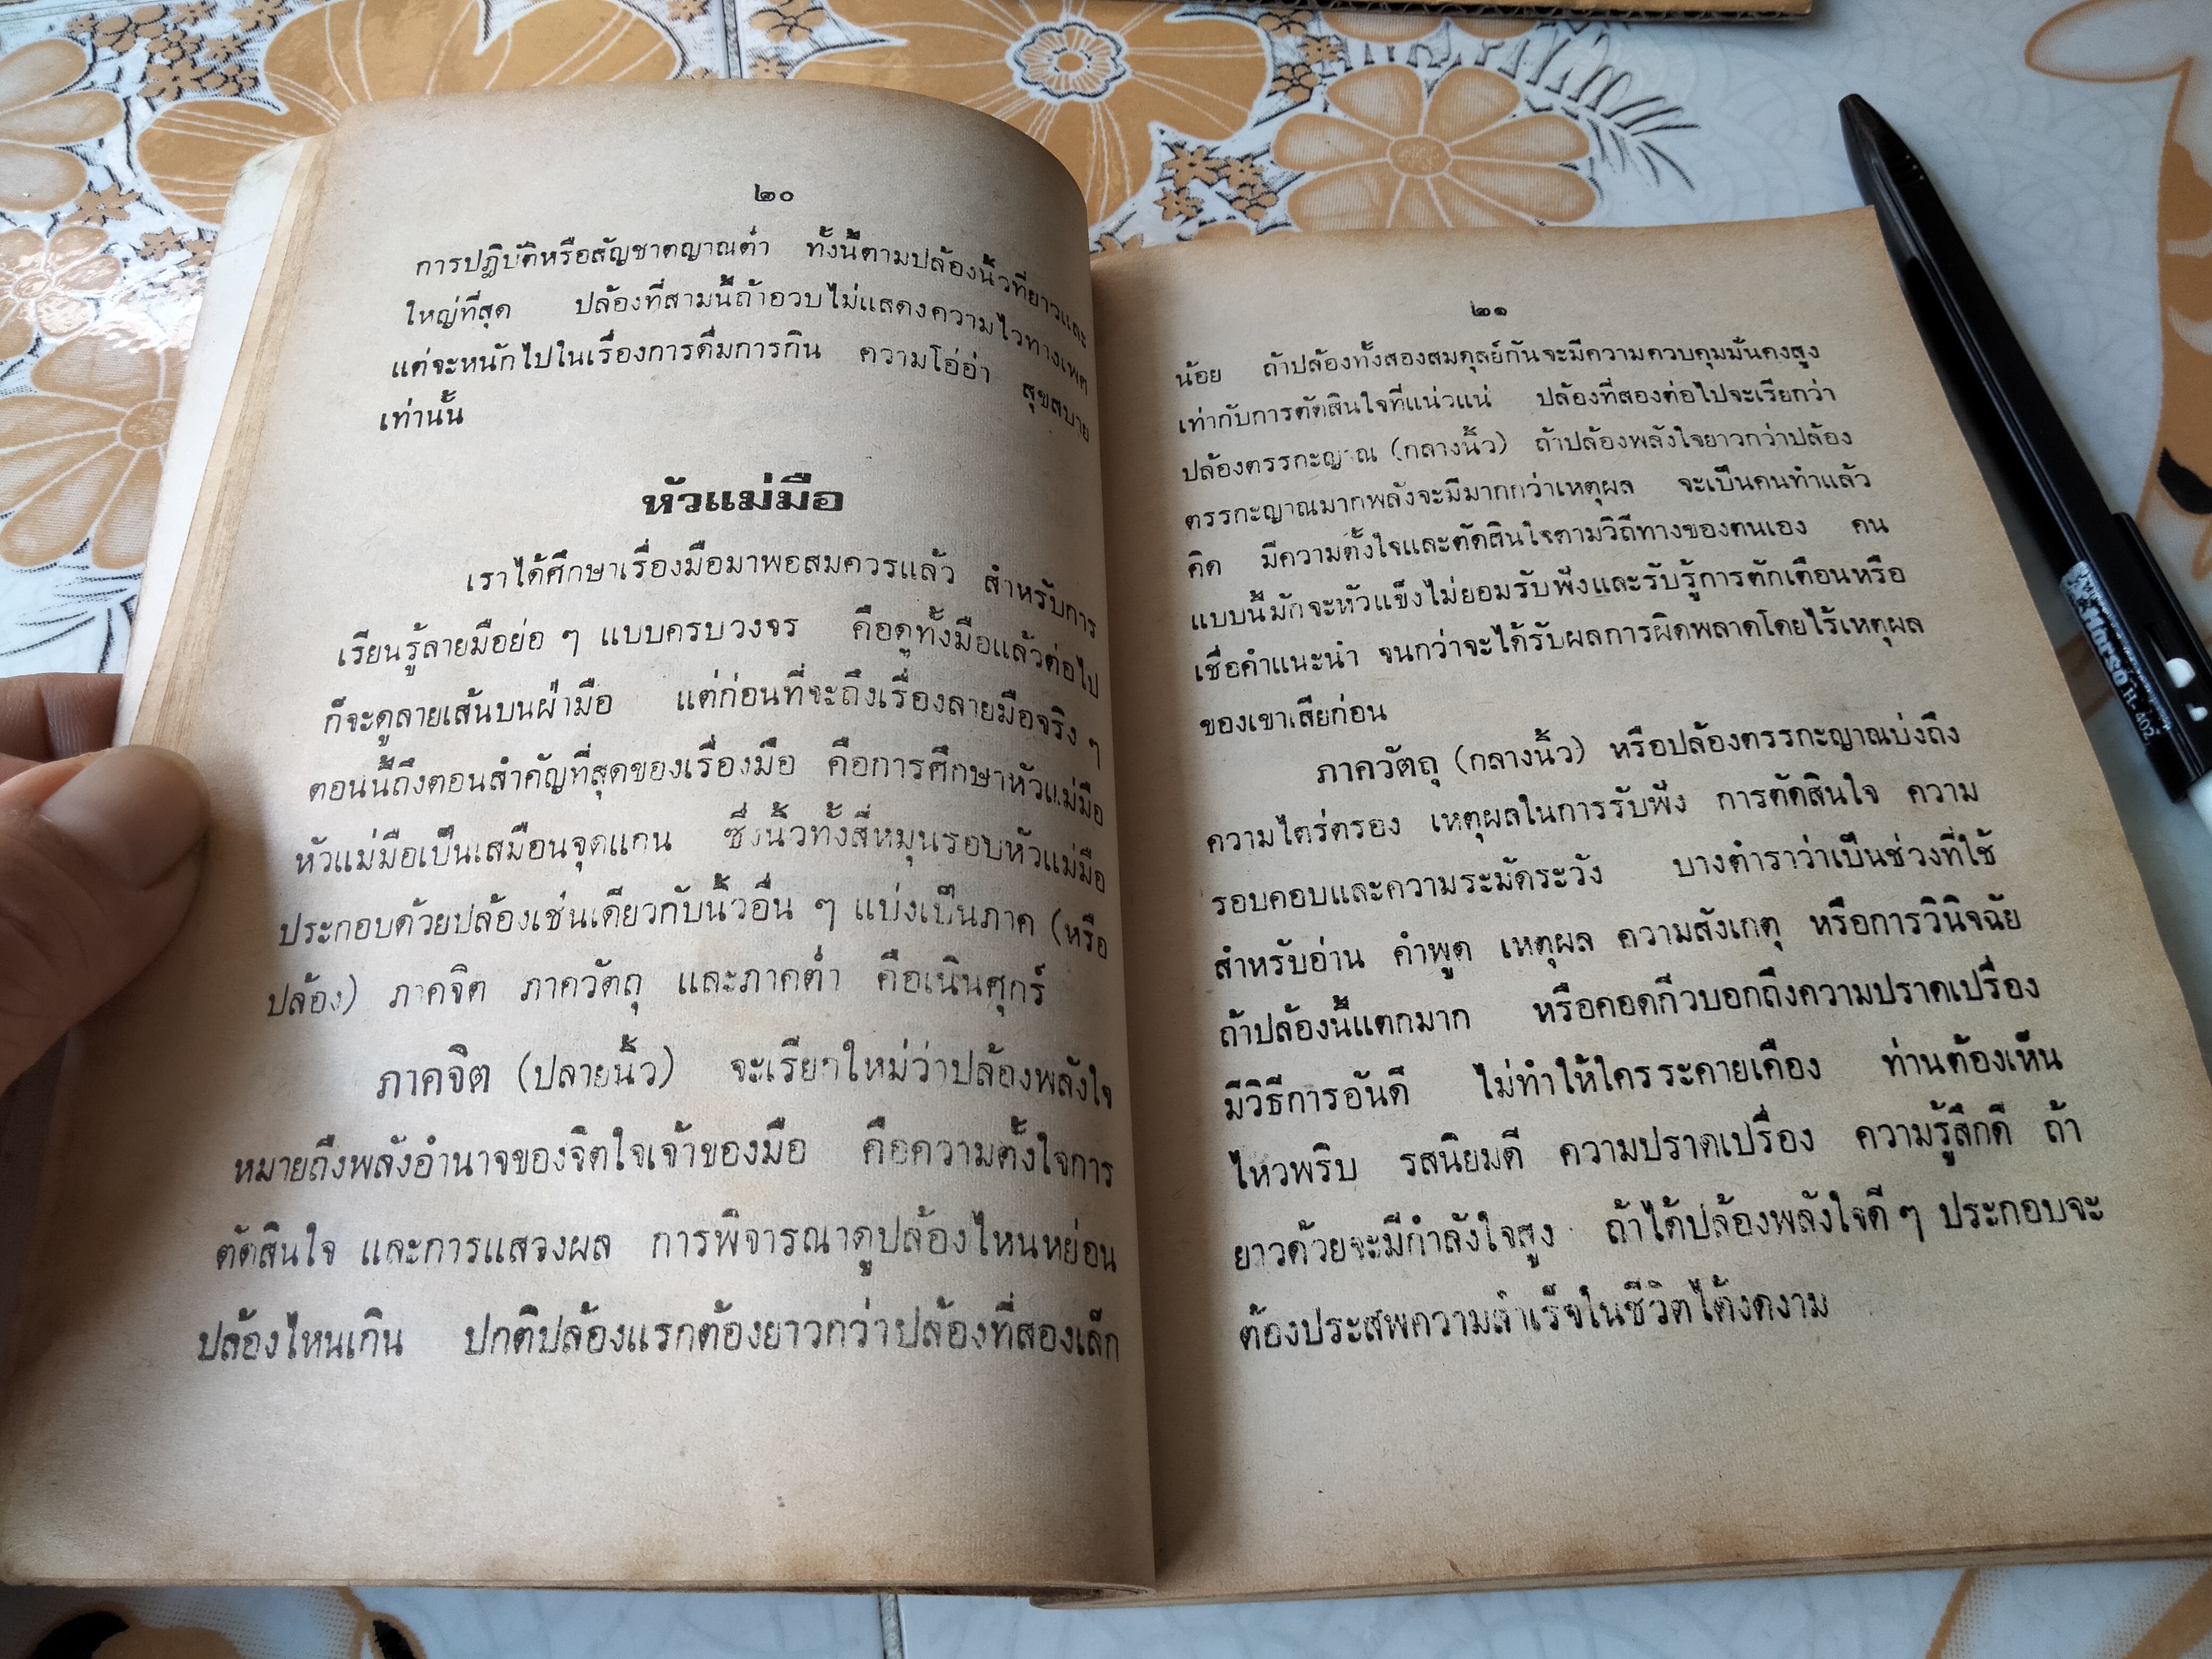 ๒๐
การปฏิบัติหรือสัญชาตญาณต่ำ ทั้งนี้ตามปล้องนิ้วที่ยาวและ
ใหญ่ที่สุด ปล้องที่สามนี้ถ้าอวบไม่แสดงความไวทางเพศ
แต่จะหนักไปในเรื่องการดื่มการกิน ความโอ่อ่า สุขสบาย
เท่านั้น
หัวแม่มือ
เราได้ศึกษาเรื่องมือมาพอสมควรแล้ว สำหรับการ
เรียนรู้ลายมือย่อ ๆ แบบครบวงจร คือดูทั้งมือแล้วต่อไป
ก็จะดูลายเส้นบนฝ่ามือ แต่ก่อนที่จะถึงเรื่องลายมือจริง ๆ
ตอนนี้ถึงตอนสำคัญที่สุดของเรื่องมือ คือการศึกษาหัวแม่มือ
หัวแม่มือเป็นเสมือนจุดแกน ซึ่งนิ้วทั้งสี่หมุนรอบหัวแม่มือ
ประกอบด้วยปล้องเช่นเดียวกับนิ้วอื่น ๆ แบ่งเป็นภาค (หรือ
ปล้อง) ภาคจิต ภาควัตถุ และภาคต่ำ คือเนินศุกร์
ภาคจิต (ปลายนิ้ว) จะเรียกใหม่ว่าปล้องพลังใจ
หมายถึงพลังอำนาจของจิตใจเจ้าของมือ คือความตั้งใจการ
ตัดสินใจ และการแสวงผล การพิจารณาดูปล้องไหนหย่อน
ปล้องไหนเกิน ปกติปล้องแรกต้องยาวกว่าปล้องที่สองเล็ก
๒๑
น้อย ถ้าปล้องทั้งสองสมดุลย์กันจะมีความควบคุมมั่นคงสูง
เท่ากับการตัดสินใจที่แน่วแน่ ปล้องที่สองต่อไปจะเรียกว่า
ปล้องตรรกะญาณ (กลางนิ้ว) ถ้าปล้องพลังใจยาวกว่าปล้อง
ตรรกะญาณมากพลังจะมีมากกว่าเหตุผล จะเป็นคนทำแล้ว
คิด มีความตั้งใจและตัดสินใจตามวิถีทางของตนเอง คน
แบบนี้มักจะหัวแข็งไม่ยอมรับฟังและรับรู้การตักเตือนหรือ
เชื่อคำแนะนำ จนกว่าจะได้รับผลการผิดพลาดโดยไร้เหตุผล
ของเขาเสียก่อน
ภาควัตถุ (กลางนิ้ว) หรือปล้องตรรกะญาณบ่งถึง
ความไตร่ตรอง เหตุผลในการรับฟัง การตัดสินใจ ความ
รอบคอบและความระมัดระวัง บางตำราว่าเป็นช่วงที่ใช้
สำหรับอ่าน คำพูด เหตุผล ความสังเกตุ หรือการวินิจฉัย
ถ้าปล้องนี้แตกมาก หรือคอดกิ่วบอกถึงความปราดเปรื่อง
มีวิธีการอันดี ไม่ทำให้ใครระคายเคือง ท่านต้องเห็น
ไหวพริบ รสนิยมดี ความปราดเปรื่อง ความรู้สึกดี ถ้า
ยาวด้วยจะมีกำลังใจสูง ถ้าได้ปล้องพลังใจดี ๆ ประกอบจะ
ต้องประสพความสำเร็จในชีวิตได้งดงาม
Horse H-402